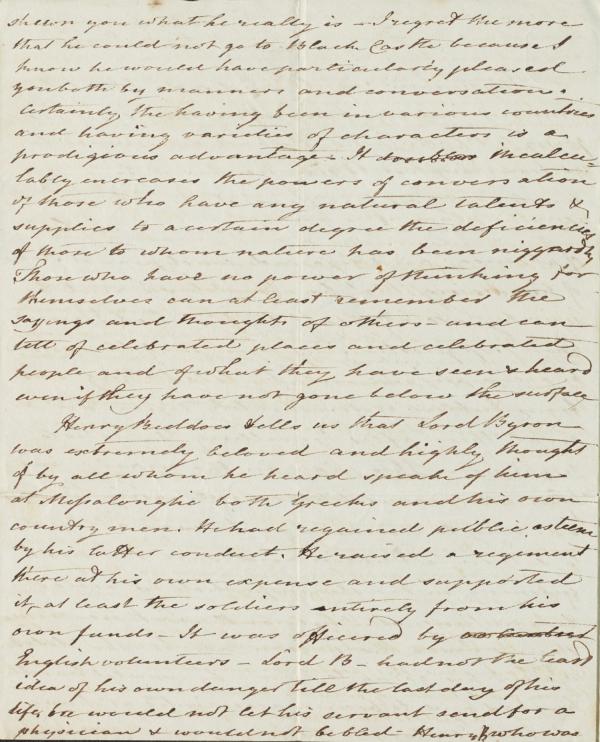 shewn you what he really is - I regret the more
that he could not go to Black Castle because I
know he would have particularly pleased
you both by manners and conversation.
Certainly the having been in various countries
and having varieties of characters is a
prodigious advantage - It incalcu-
lably encreases the powers of conversation
of those who have any natural talents &
supplies to a certain degree the deficiencies
of those to whom nature has been niggardly
Those who have no power of thinking for
themselves can at least remember the
sayings and thoughts of others - and can
tell of celebrated places and celebrated
people and of what they have seen & heard
even if they have not gone below the surface
Henry Beddoes tells us that Lord Byron
was extremely beloved and highly thought
of by all whom he heard speak of him
at Missalonghi both Greeks and his own
country men. He had regained public esteem
by his latter conduct. He raised a regiment
there at his own expense and supported
it, at least the soldiers entirely from his
own funds - It was officered by
English volunteers - Lord B - had not the least
idea of his own danger till the last day of his
life, he would not let his servant send for a
physician & would not be bled - Henry B who was